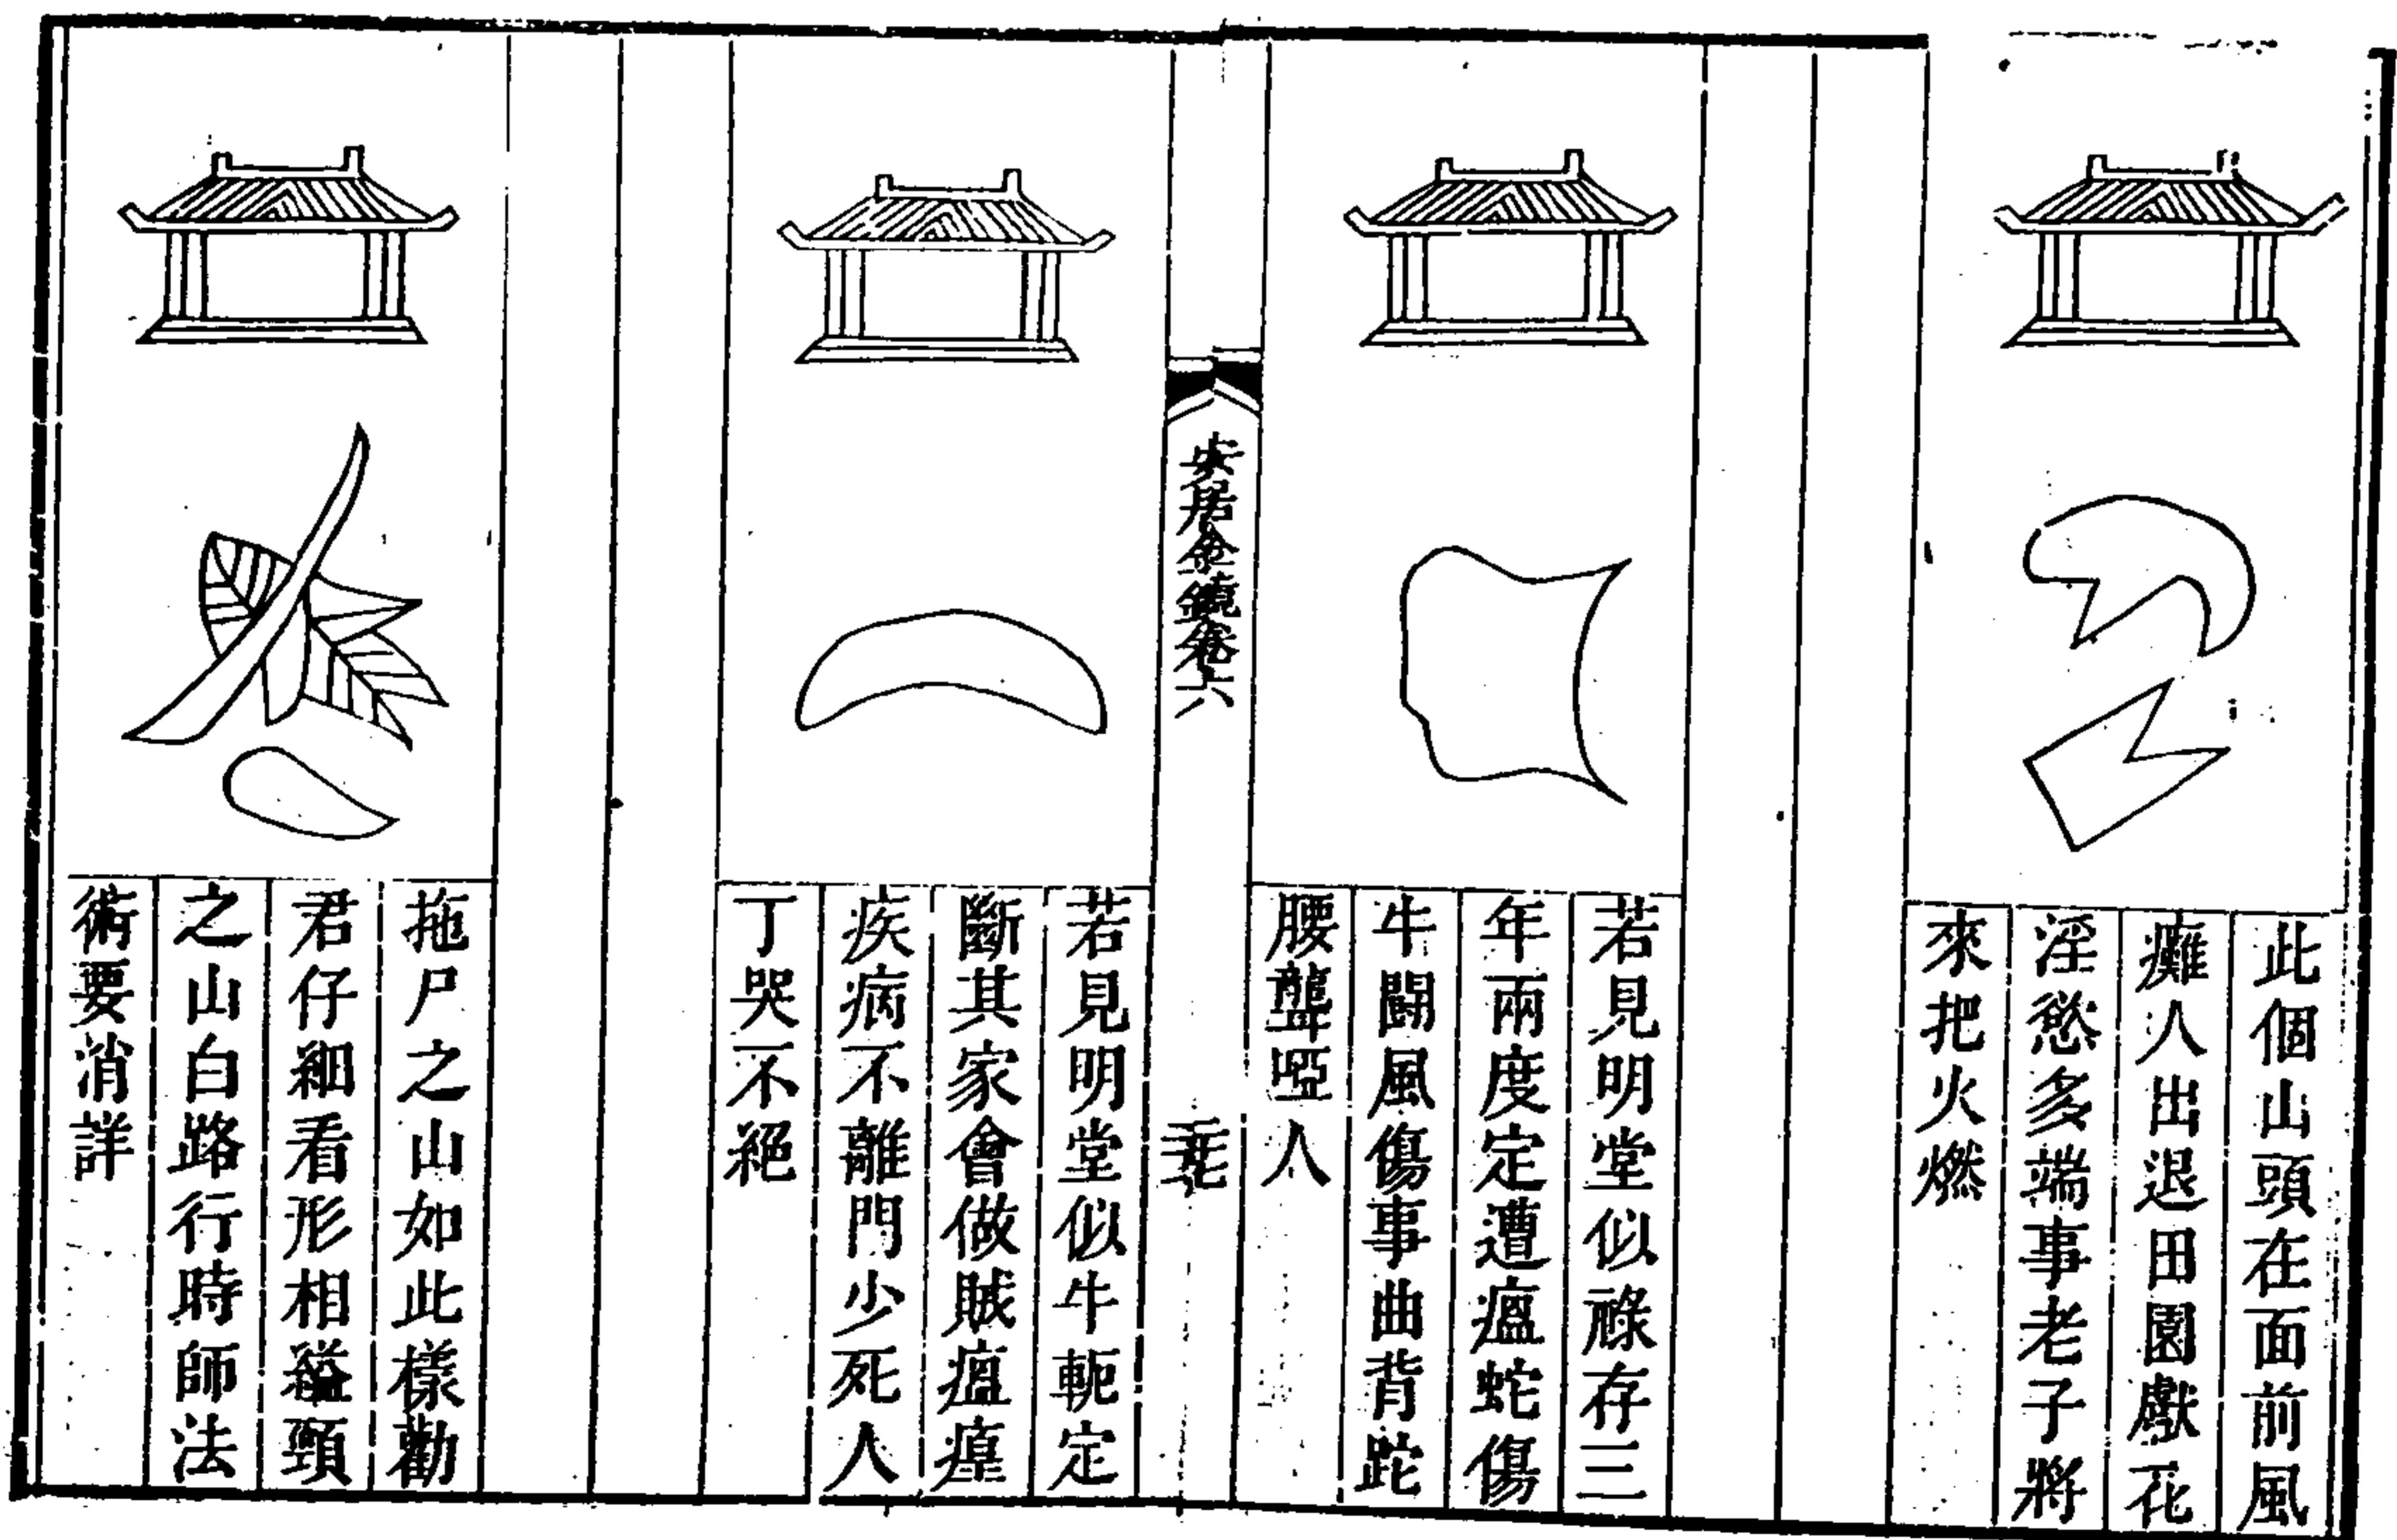 此個山頭在面前風
癱人出退田園獻花
淫慾多端事老子將
來把火燃
若見明堂似祿存三
年兩度定遭瘟蛇傷
牛鬬風傷事曲背跎
腰聾啞人
安居金鏡卷六
若見明堂似牛軛定
斷其家會做賊瘟𤸇
疾病不離門少死人
丁哭不絕
拖尸之山如此樣勸
君仔細看形相縊頸
之山白路行時師法
術要消詳